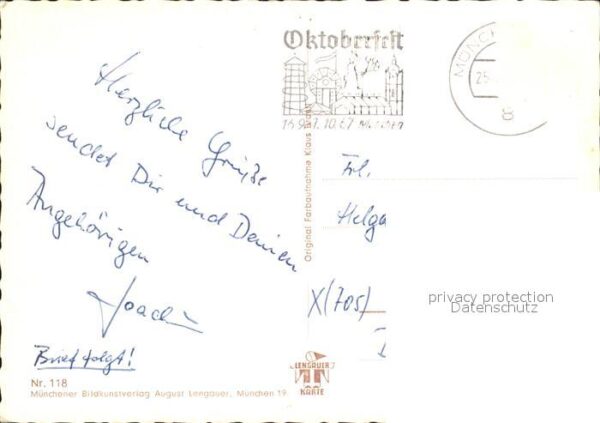 Herzliche Grüße
sendet Dir und Deinen
Angehörigen
Joachim
Brief folgt!
Nr. 118
Münchener Bildkunstverlag August Lengauer, München 19
Oktoberfest
16.9.-1.10.67 München
MÜNCH
25.
8
Original Farbaufnahme Klaus
Frl.
Helga
X(705)
privacy protection
Datenschutz
I
LENGAUER
KARTE